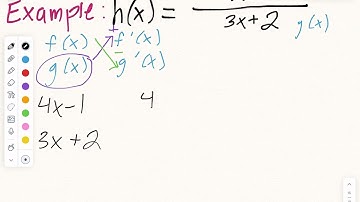 Example: h(x) =
3x+2 g(x)
f(x) f'(x)
g(x) g'(x)
4x-1 4
3x+2